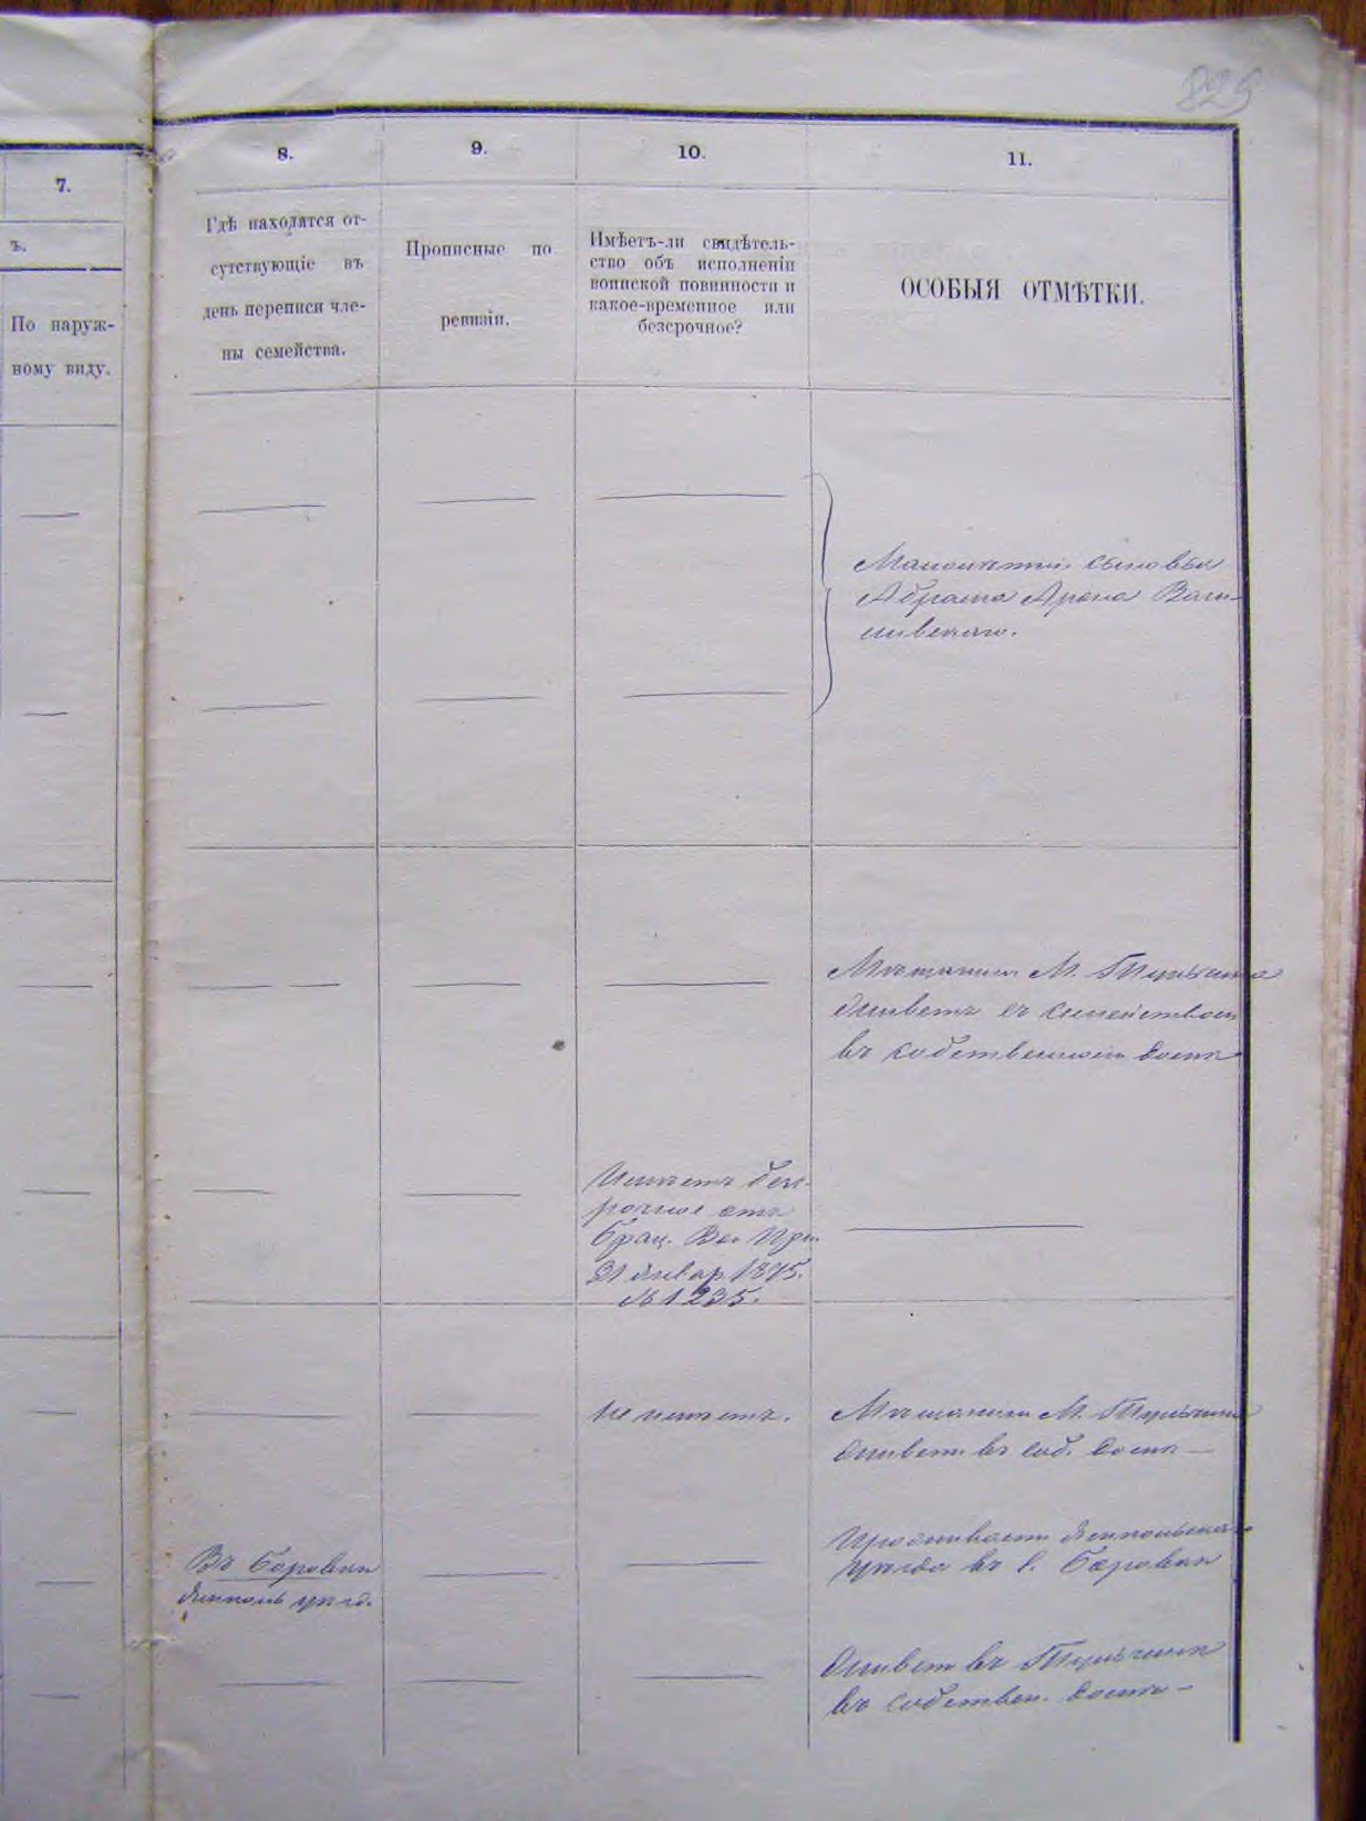 825
7.
8.
9.
10.
11.
ъ.
По наруж-
ному виду.
Гдѣ находятся от-
сутствующіе въ
день переписи чле-
ны семейства.
Прописные по
ревизіи.
Имѣетъ-ли свидѣтель-
ство объ исполненіи
воинской повинности и
какое-временное или
безсрочное?
ОСОБЫЯ ОТМѢТКИ.
сыновья
Абрама Арона
Мѣщанинъ М. Тульчина
живетъ съ семействомъ
въ собственномъ домѣ
Имѣетъ без-
рочное отъ
Брац. Во. При.
31 январ. 1875.
№ 1235.
Не имѣетъ.
Мѣщанинъ М. Тульчина
живетъ въ соб. домѣ
Въ Боровкѣ
Ямполь уѣзд.
Проживаетъ Ямпольскаго
уѣзда въ с. Боровкѣ
Живетъ въ Тульчинѣ
въ собствен. домѣ